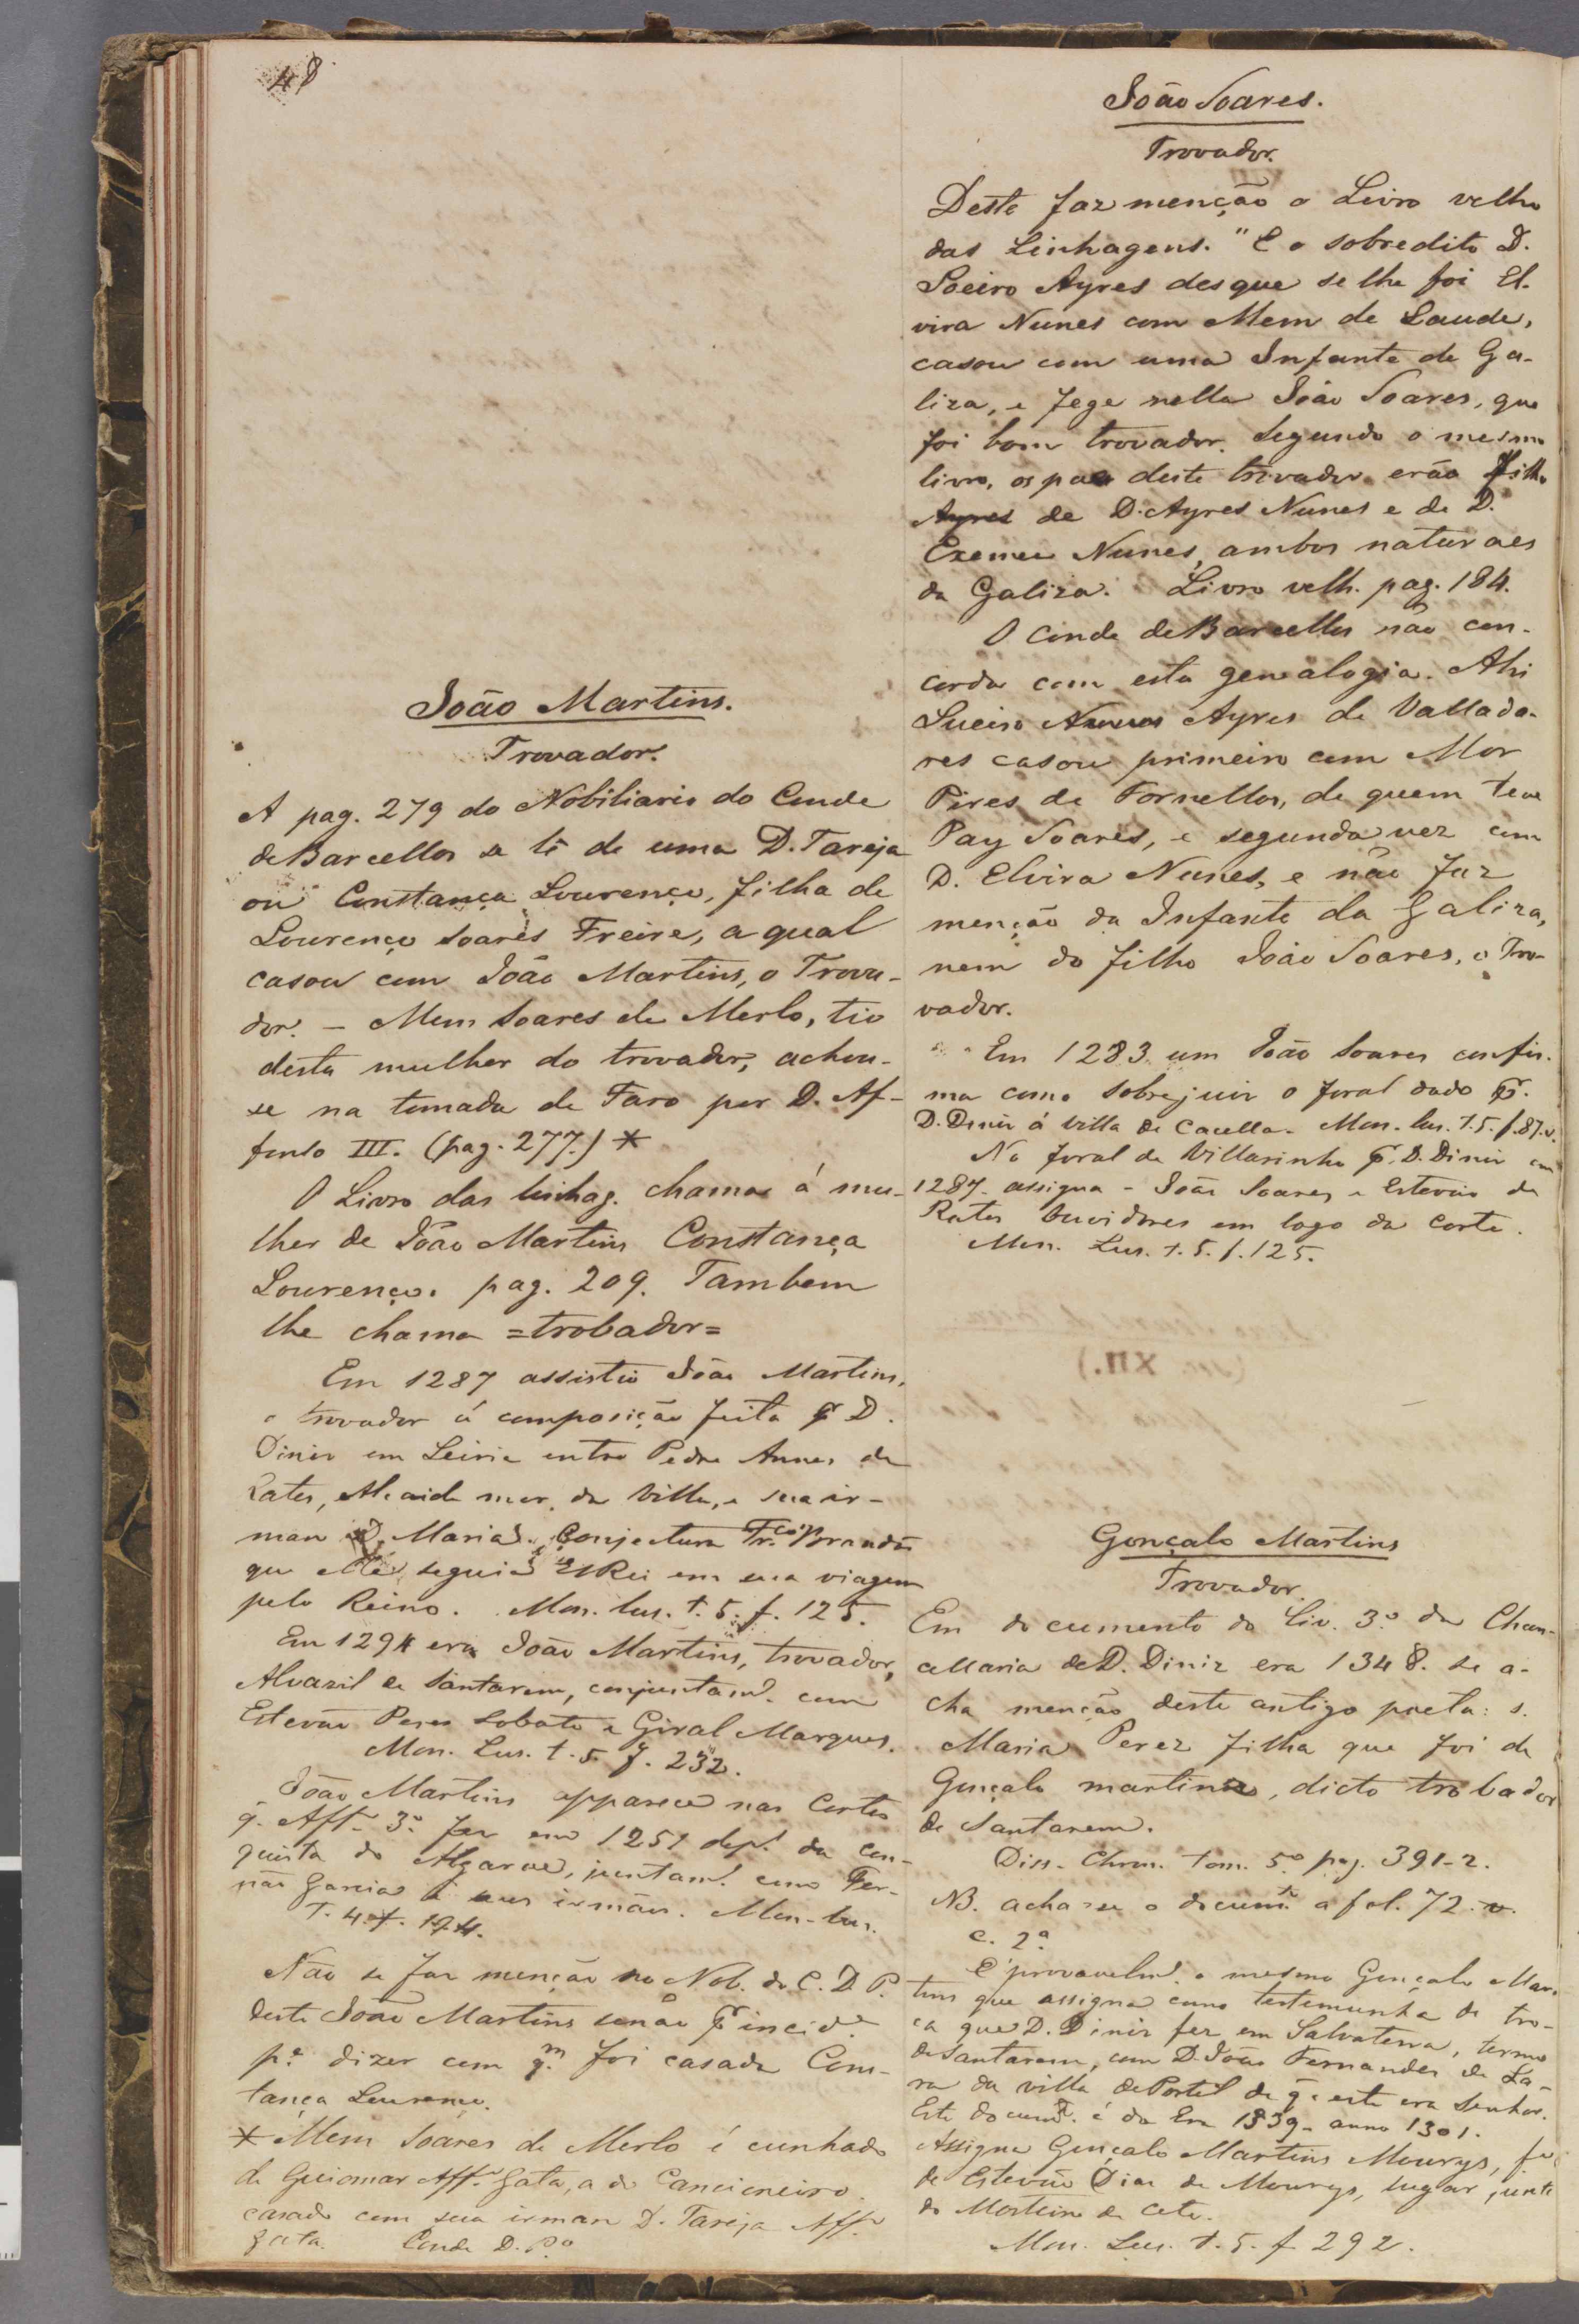 48
João Martins.
Trovador.
A pag. 279 do Nobiliario do Conde
de Barcellos se lê de uma D. Tareja
ou Constança Lourenço, filha de
Lourenço Soares Freire, a qual
casou com João Martins, o Trova-
dor. — Mem Soares de Merlo, tio
desta mulher do trovador, achou-
se na tomada de Faro por D. Af-
fonso III. (pag. 277.) *
O Livro das linhag. chama á mu-
lher de João Martins Constança
Lourenço. pag. 209. Tambem
lhe chama =trobador=
Em 1287 assistio João Martins,
o trovador á composição feita pr D.
Diniz em Leiria entre Pedro Annes de
Rates, Alcaide mor da Villa, e sua ir-
man D. Maria. Conjectura Fr.co Brandão
que elle seguia ElRei em sua viagem
pelo Reino. Mon. lus. t. 5. f. 125.
Em 1294 era João Martins, trovador,
Alvazil de Santarem, conjuntam.e com
Estevão Peres Lobato e Giral Marques.
Mon. Lus. t. 5. f. 232.
João Martins apparece nas Cortes
q. Aff.o 3.o fez em 1251 dep.s da con-
quista do Algarve, juntam.e com Fer-
não Garcia e seus irmãos. Mon. lus.
T. 4. f. 194.
Não se faz menção no Nob. do C. D. P.
deste João Martins senão pr incid.e
p.a dizer com q.m foi casada Cons-
tança Lourenço.
* Mem Soares de Merlo é cunhado
de Guiomar Aff.o Gata, a do Cancioneiro.
casado com sua irman D. Tareja Aff.o
Gata. Conde D. P.o
João Soares.
Trovador.
Deste faz menção o Livro velho
das Linhagens. "E o sobredito D.
Soeiro Ayres desque se lhe foi El-
vira Nunes com Mem de Laude,
casou com uma Infante de Ga-
liza, e fege nella João Soares, que
foi bom trovador. Segundo o mesmo
livro, os paes deste trovador erão filho
Ayres de D. Ayres Nunes e de D.
Exemea Nunes, ambos naturaes
da Galiza. Livro velh. pag. 184.
O Conde de Barcellos não con-
corda com esta genealogia. Ahi
Sueiro Nunes Ayres de Vallada-
res casou primeiro com Mor
Pires de Fornellos, de quem teve
Pay Soares, e segunda vez com
D. Elvira Nunes, e não faz
menção da Infante da Galiza,
nem do filho João Soares, o Tro-
vador.
Em 1283 um João Soares confir-
ma como sobrejuiz o foral dado pr.
D. Diniz á villa de Cacella. Mon. lus. t. 5. f. 87. v.
No foral de Villarinho pr. D. Diniz em
1287 assigna - João Soares e Estevão de
Rates Ouvidores em logo da Corte.
Mon. Lus. t. 5. f. 125.
Gonçalo Martins
Trovador.
Em documento do Liv. 3.o da Chan-
cellaria de D. Diniz era 1348. se a-
cha menção deste antigo poeta: s.
Maria Perez filha que foi de
Gonçalo martins, dicto trobador
de Santarem.
Diss. Chron. tom. 5.o pag. 391-2.
NB. acha-se o docum.to a fol. 72. v.
c. 2.a
É provavelm.e o mesmo Gonçalo Mar-
tins que assigna como testemunha da tro-
ca que D. Diniz fez em Salvaterra, termo
de Santarem, com D. João Fernandes de La-
ra da villa de Portel de q. este era Senhor.
Este docum.to é da Era 1339 - anno 1301.
Assigna Gonçalo Martins Mourys, f.o
de Estevão Dias de Mourys, lugar junto
do Mosteiro de Cete.
Mon. Lus. t. 5. f. 292.